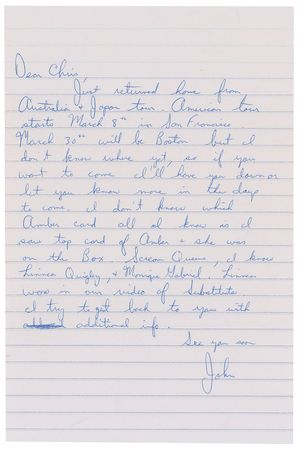 Dear Chris,
Just returned home from
Australia & Japan tour. American tour
starts March 8th in San Francisco.
March 30th will be Boston but I
don't know where yet, so if you
want to come I'll have you down or
let you know more in the days
to come. I don't know which
Amber card all I know is I
saw top card of Amber & she was
on the Box. Scream Queens, I know
Linnea Quigley, & Monique Gabriel, Linnea
was in our video of Substitute.
I try to get back to you with
additional info.
See you soon
John